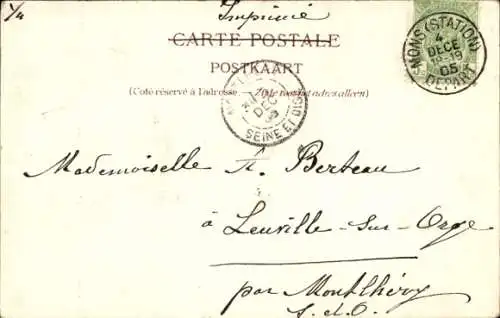 1/4
Imprimé
CARTE POSTALE
POSTKAART
(Côté réservé à l'adresse. — Zijde voor het adres alleen)
MONS (STATION)
4
DECE
18-19
05
DEPART
DEC
SEINE ET OISE
Mademoiselle A. Berteau
à Leuville-sur-Orge
par Montlhéry
S.-et-O.